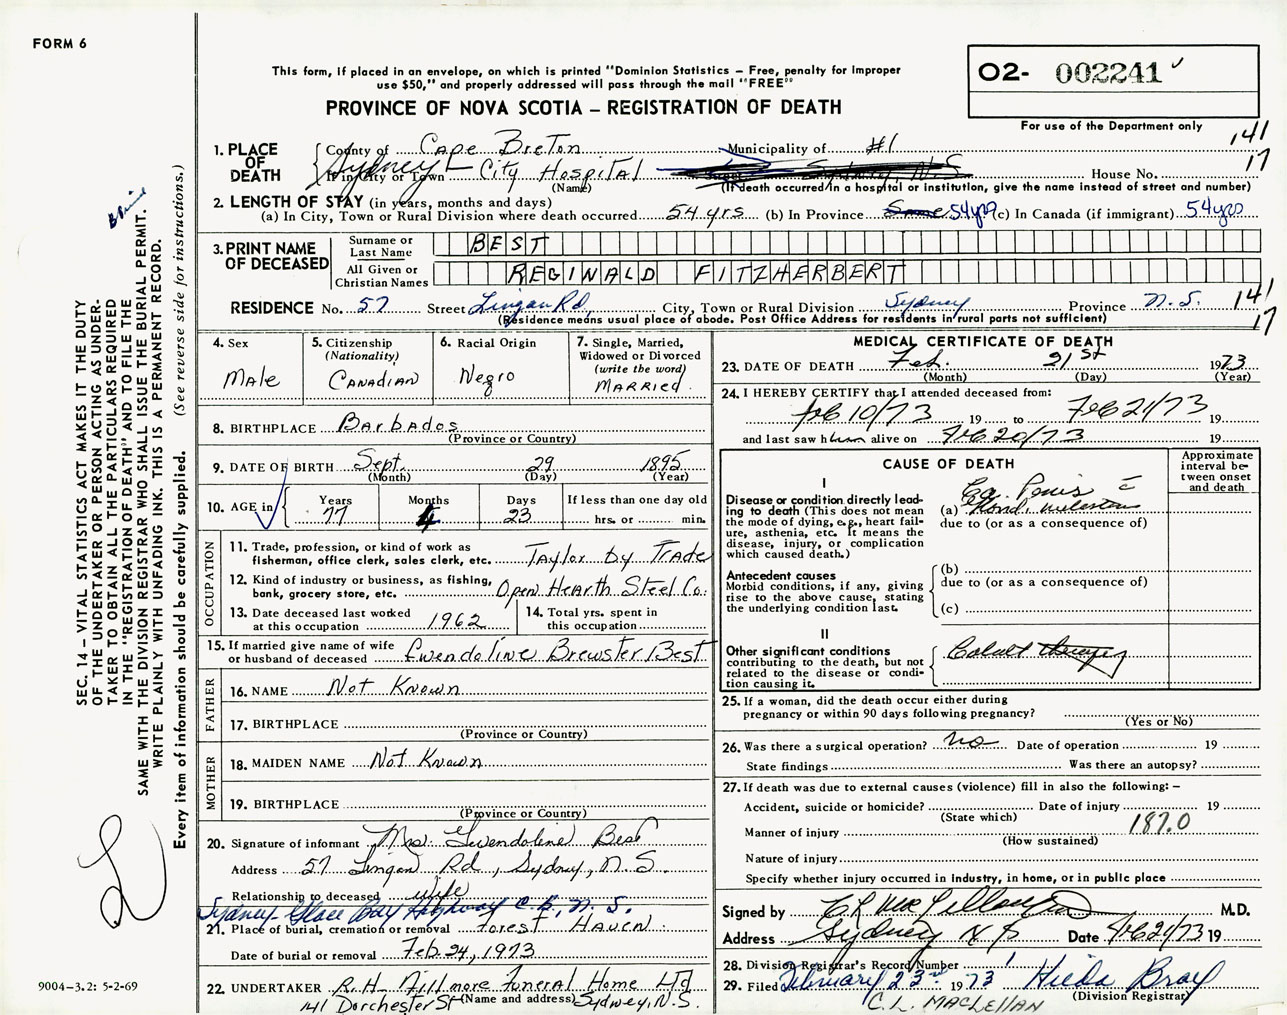 FORM 6
This form, if placed in an envelope, on which is printed "Dominion Statistics – Free, penalty for improper
use $50," and properly addressed will pass through the mail "FREE"
PROVINCE OF NOVA SCOTIA – REGISTRATION OF DEATH
O2- 002241
For use of the Department only
141
17
1. PLACE OF DEATH
County of Cape Breton Municipality of #1
Sydney
If in City or Town City Hospital Street Sydney, N.S. House No.
(Name) (If death occurred in a hospital or institution, give the name instead of street and number)
2. LENGTH OF STAY (in years, months and days)
(a) In City, Town or Rural Division where death occurred 54 yrs (b) In Province Same 54 yrs (c) In Canada (if immigrant) 54 yrs
3. PRINT NAME OF DECEASED
Surname or Last Name BEST
All Given or Christian Names REGINALD FITZHERBERT
RESIDENCE No. 57 Street Lingan Rd, City, Town or Rural Division Sydney Province N.S. 141
17
(Residence means usual place of abode. Post Office Address for residents in rural parts not sufficient)
4. Sex
Male
5. Citizenship
(Nationality)
Canadian
6. Racial Origin
Negro
7. Single, Married,
Widowed or Divorced
(write the word)
Married
8. BIRTHPLACE Barbados
(Province or Country)
9. DATE OF BIRTH Sept. 29 1895
(Month) (Day) (Year)
10. AGE in
Years Months Days If less than one day old
77 4 23 hrs. or min.
OCCUPATION
11. Trade, profession, or kind of work as
fisherman, office clerk, sales clerk, etc. Taylor by Trade
12. Kind of industry or business, as fishing,
bank, grocery store, etc. Open Hearth Steel Co.
13. Date deceased last worked
at this occupation 1962
14. Total yrs. spent in
this occupation
15. If married give name of wife
or husband of deceased Gwendoline Brewster Best
FATHER
16. NAME Not Known
17. BIRTHPLACE
(Province or Country)
MOTHER
18. MAIDEN NAME Not Known
19. BIRTHPLACE
(Province or Country)
20. Signature of informant Mrs. Gwendoline Best
Address 57 Lingan Rd, Sydney, N.S.
Relationship to deceased wife
Sydney Glace Bay Highway C.B., N.S.
21. Place of burial, cremation or removal Forest Haven
Date of burial or removal Feb. 24, 1973
22. UNDERTAKER R.H. Fillmore Funeral Home Ltd
141 Dorchester St (Name and address) Sydney, N.S.
MEDICAL CERTIFICATE OF DEATH
23. DATE OF DEATH Feb. 21st 1973
(Month) (Day) (Year)
24. I HEREBY CERTIFY that I attended deceased from:
Feb 10/73 19 to Feb 21/73 19
and last saw him alive on Feb 20/73 19
CAUSE OF DEATH
Approximate
interval be-
tween onset
and death
I
Disease or condition directly lead-
ing to death (This does not mean
the mode of dying, e.g., heart fail-
ure, asthenia, etc. It means the
disease, injury, or complication
which caused death.)
(a) Ca. Penis c̄
due to (or as a consequence of)
Antecedent causes
Morbid conditions, if any, giving
rise to the above cause, stating
the underlying condition last.
(b)
due to (or as a consequence of)
(c)
II
Other significant conditions
contributing to the death, but not
related to the disease or condi-
tion causing it.
Cobalt therapy
25. If a woman, did the death occur either during
pregnancy or within 90 days following pregnancy?
(Yes or No)
26. Was there a surgical operation? no Date of operation 19
State findings Was there an autopsy?
27. If death was due to external causes (violence) fill in also the following: –
Accident, suicide or homicide? Date of injury 19
(State which)
Manner of injury 187.0
(How sustained)
Nature of injury
Specify whether injury occurred in industry, in home, or in public place
Signed by M.D.
Address Sydney N S Date Feb 21/73 19
28. Division Registrar's Record Number 1
29. Filed February 23rd 1973 Hilda Bray
(Division Registrar)
C.L. MacLellan
SEC. 14 – VITAL STATISTICS ACT MAKES IT THE DUTY
OF THE UNDERTAKER OR PERSON ACTING AS UNDER-
TAKER TO OBTAIN ALL THE PARTICULARS REQUIRED
IN THE "REGISTRATION OF DEATH" AND TO FILE THE
SAME WITH THE DIVISION REGISTRAR WHO SHALL ISSUE THE BURIAL PERMIT.
WRITE PLAINLY WITH UNFADING INK. THIS IS A PERMANENT RECORD.
Every item of information should be carefully supplied. (See reverse side for instructions.)
9004-3.2: 5-2-69